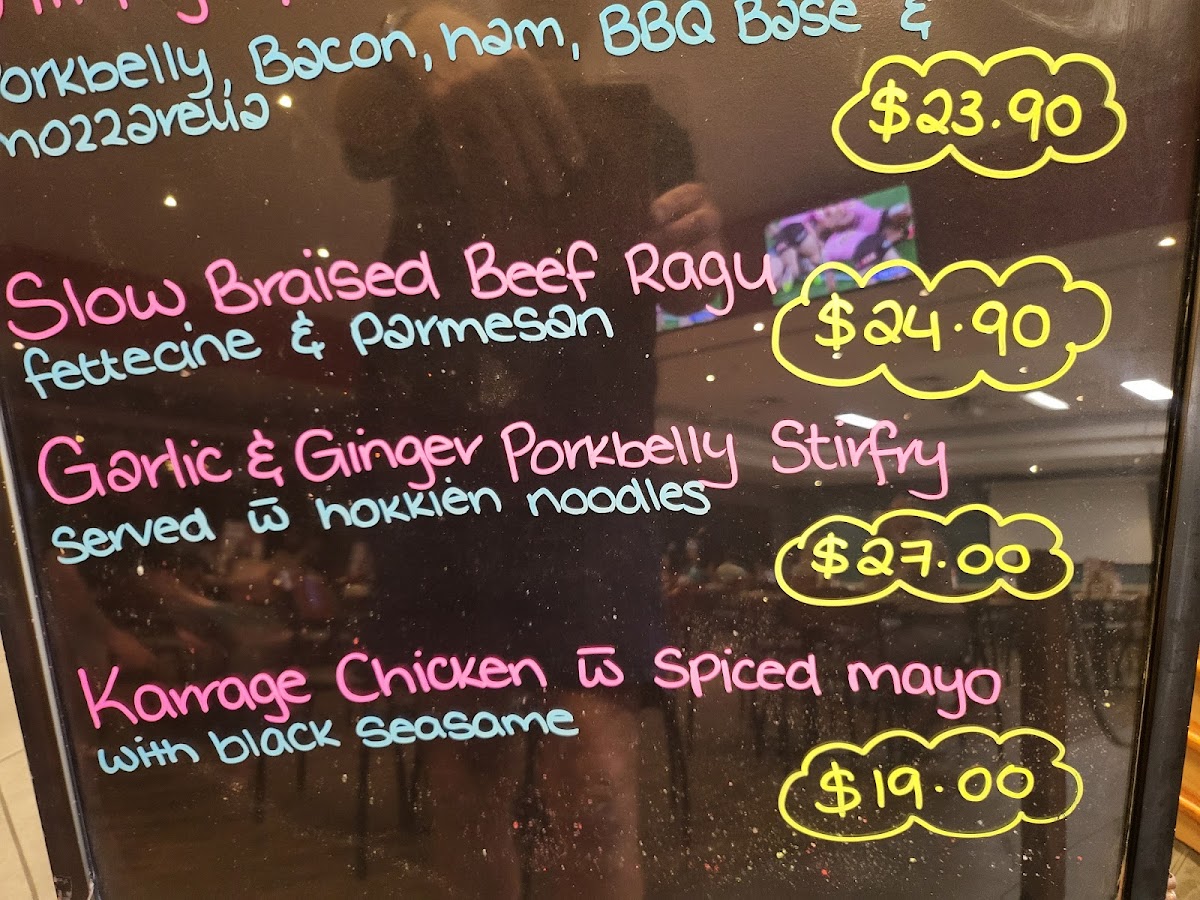 Porkbelly, Bacon, ham, BBQ Base &
mozzarella
$23.90
Slow Braised Beef Ragu
fettecine & Parmesan
$24.90
Garlic & Ginger Porkbelly Stirfry
Served w̅ hokkien noodles
$27.00
Karrage Chicken w̅ spiced mayo
with black seasame
$19.00